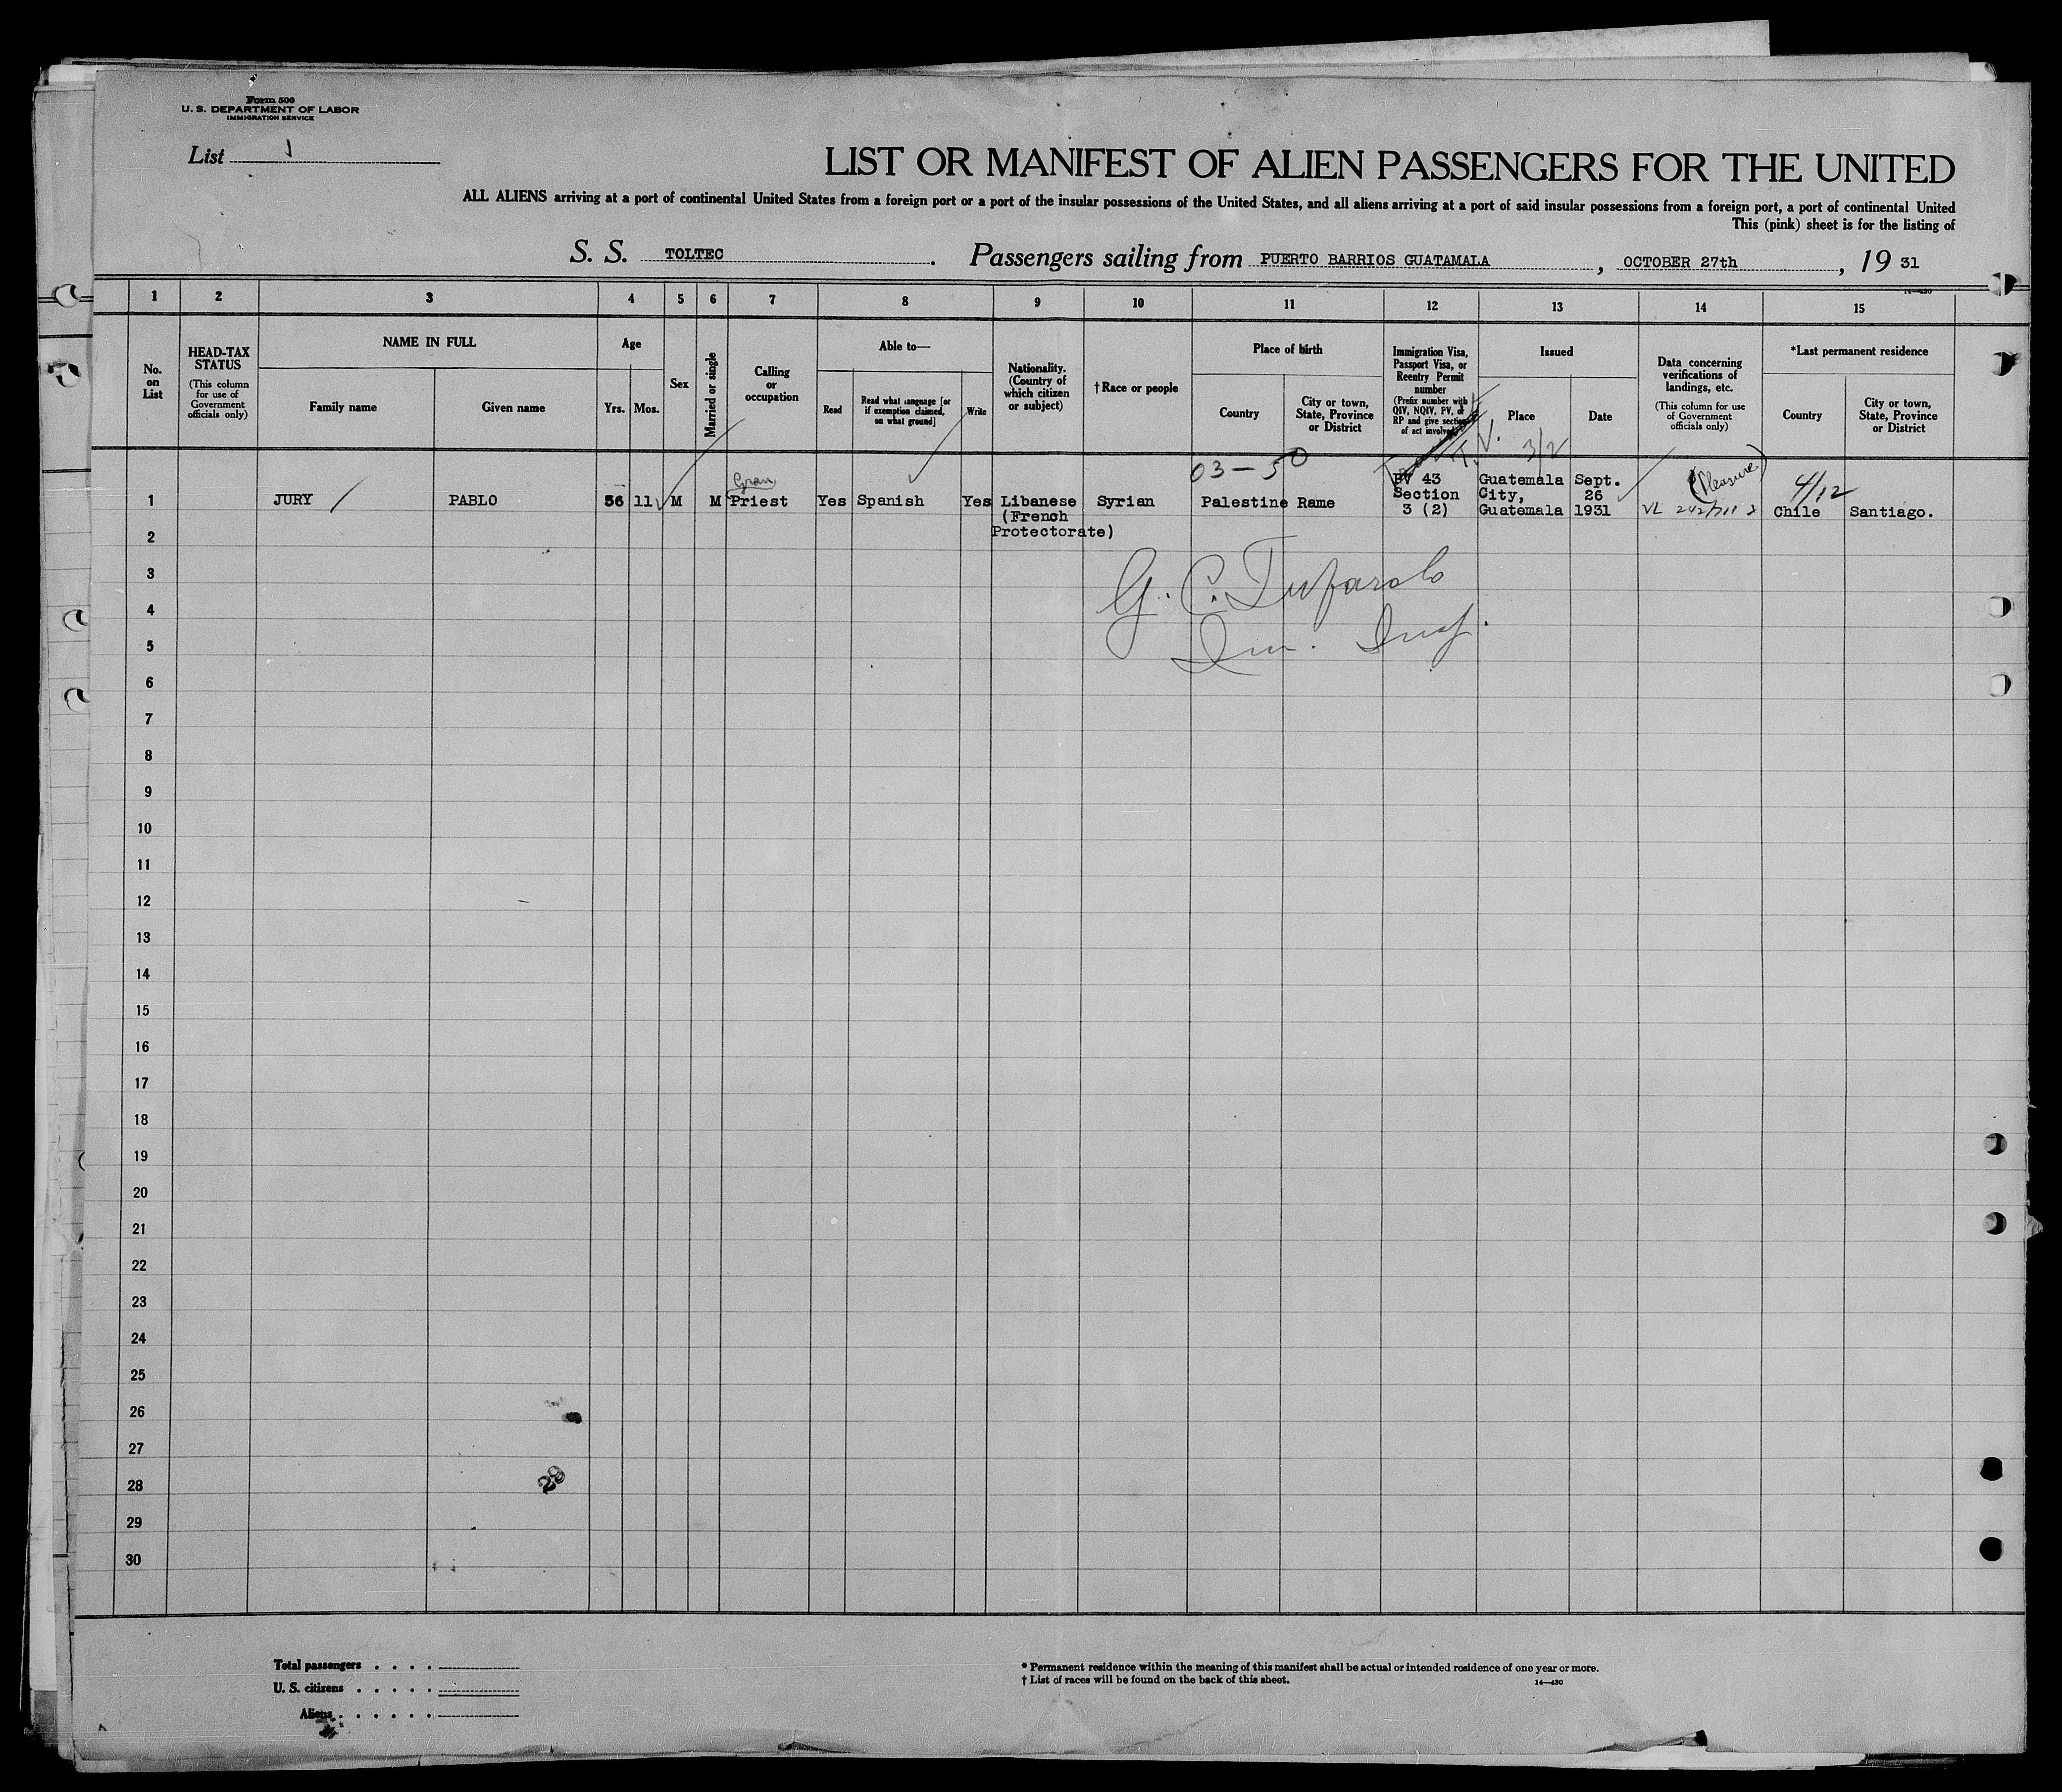 Form 500
U. S. DEPARTMENT OF LABOR
IMMIGRATION SERVICE
List 1
LIST OR MANIFEST OF ALIEN PASSENGERS FOR THE UNITED
ALL ALIENS arriving at a port of continental United States from a foreign port or a port of the insular possessions of the United States, and all aliens arriving at a port of said insular possessions from a foreign port, a port of continental United
This (pink) sheet is for the listing of
S. S. TOLTEC. Passengers sailing from PUERTO BARRIOS GUATAMALA, OCTOBER 27th, 19 31
14—430
1 2 3 4 5 6 7 8 9 10 11 12 13 14 15
No. on List
HEAD-TAX STATUS
(This column for use of Government officials only)
NAME IN FULL
Family name
Given name
Age
Yrs.
Mos.
Sex
Married or single
Calling or occupation
Able to—
Read
Read what language [or if exemption claimed, on what ground]
Write
Nationality. (Country of which citizen or subject)
†Race or people
Place of birth
Country
City or town, State, Province or District
Immigration Visa, Passport Visa, or Reentry Permit number
(Prefix number with QIV, NQIV, PV, or RP and give section of act involved)
Issued
Place
Date
Data concerning verifications of landings, etc.
(This column for use of Government officials only)
*Last permanent residence
Country
City or town, State, Province or District
T.V.
3/2
03-50
(Pleasure)
4/12
1 JURY PABLO 56 11 M M Priest Yes Spanish Yes Libanese (French Protectorate) Syrian Palestine Rame PV 43 Section 3 (2) Guatemala City, Guatemala Sept. 26 1931 Chile Santiago.
2
3
4
5
6
7
8
9
10
11
12
13
14
15
16
17
18
19
20
21
22
23
24
25
26
27
28
29
30
G. C.
Im. Insp.
28
Total passengers . . . .
U. S. citizens . . . . .
Aliens . . . . . .
* Permanent residence within the meaning of this manifest shall be actual or intended residence of one year or more.
† List of races will be found on the back of this sheet.
14—430